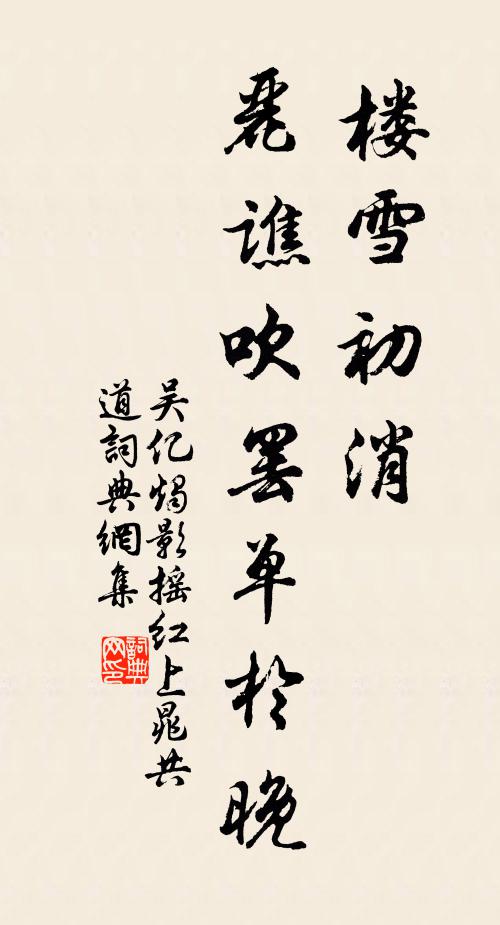 楼雪初消
丽谯吹罢单于晚
吴亿烛影摇红上晁共
道詞典網集
詞典
网印